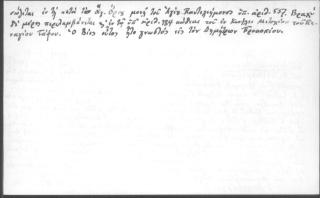 σώζεται ἐν τῇ κατὰ τὸ Ἅγ. Ὄρος μονῇ τοῦ Ἁγίου Παντελεήμονος ὑπ' ἀριθ. 557. Βραχὺ
δὲ μέρος περιλαμβάνεται καὶ ἐν τῷ ὑπ' ἀριθ. 184 κώδικι τοῦ ἐν Μετοχίου τοῦ Πα-
ναγίου Τάφου. Ὁ Βίος οὗτος ἦτο γνωστὸς εἰς τὸν Δημήτριον